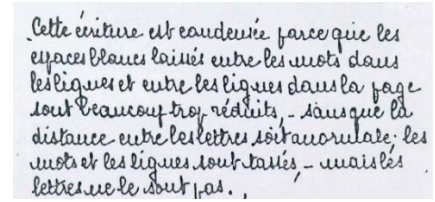 Cette écriture est condensée parce que les
espaces blancs laissés entre les mots dans
les lignes et entre les lignes dans la page
sont beaucoup trop réduits, - sans que la
distance entre les lettres soit anormale; les
mots et les lignes sont tassés, - mais les
lettres ne le sont pas.